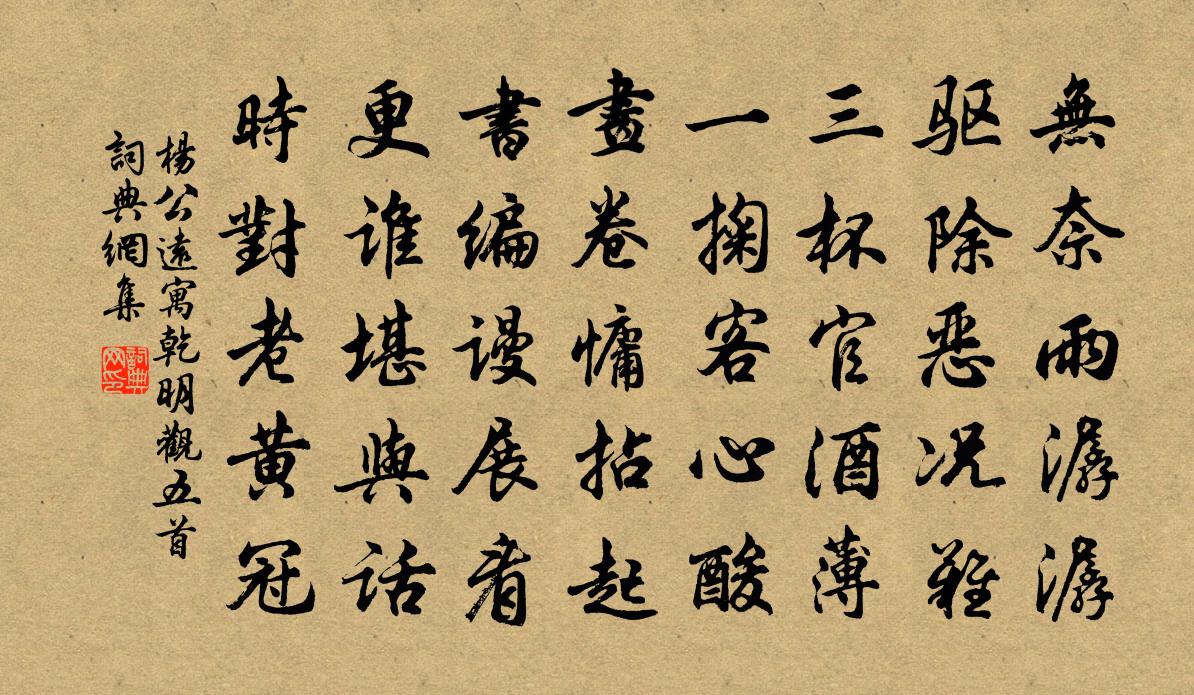 無奈雨潺潺
驱除恶况難
三杯官酒薄
一掬客心酸
畫卷慵拈起
書編謾展看
更誰堪與話
時對老黄冠
楊公遠寓乾明觀五首
詞典網集
詞典网印